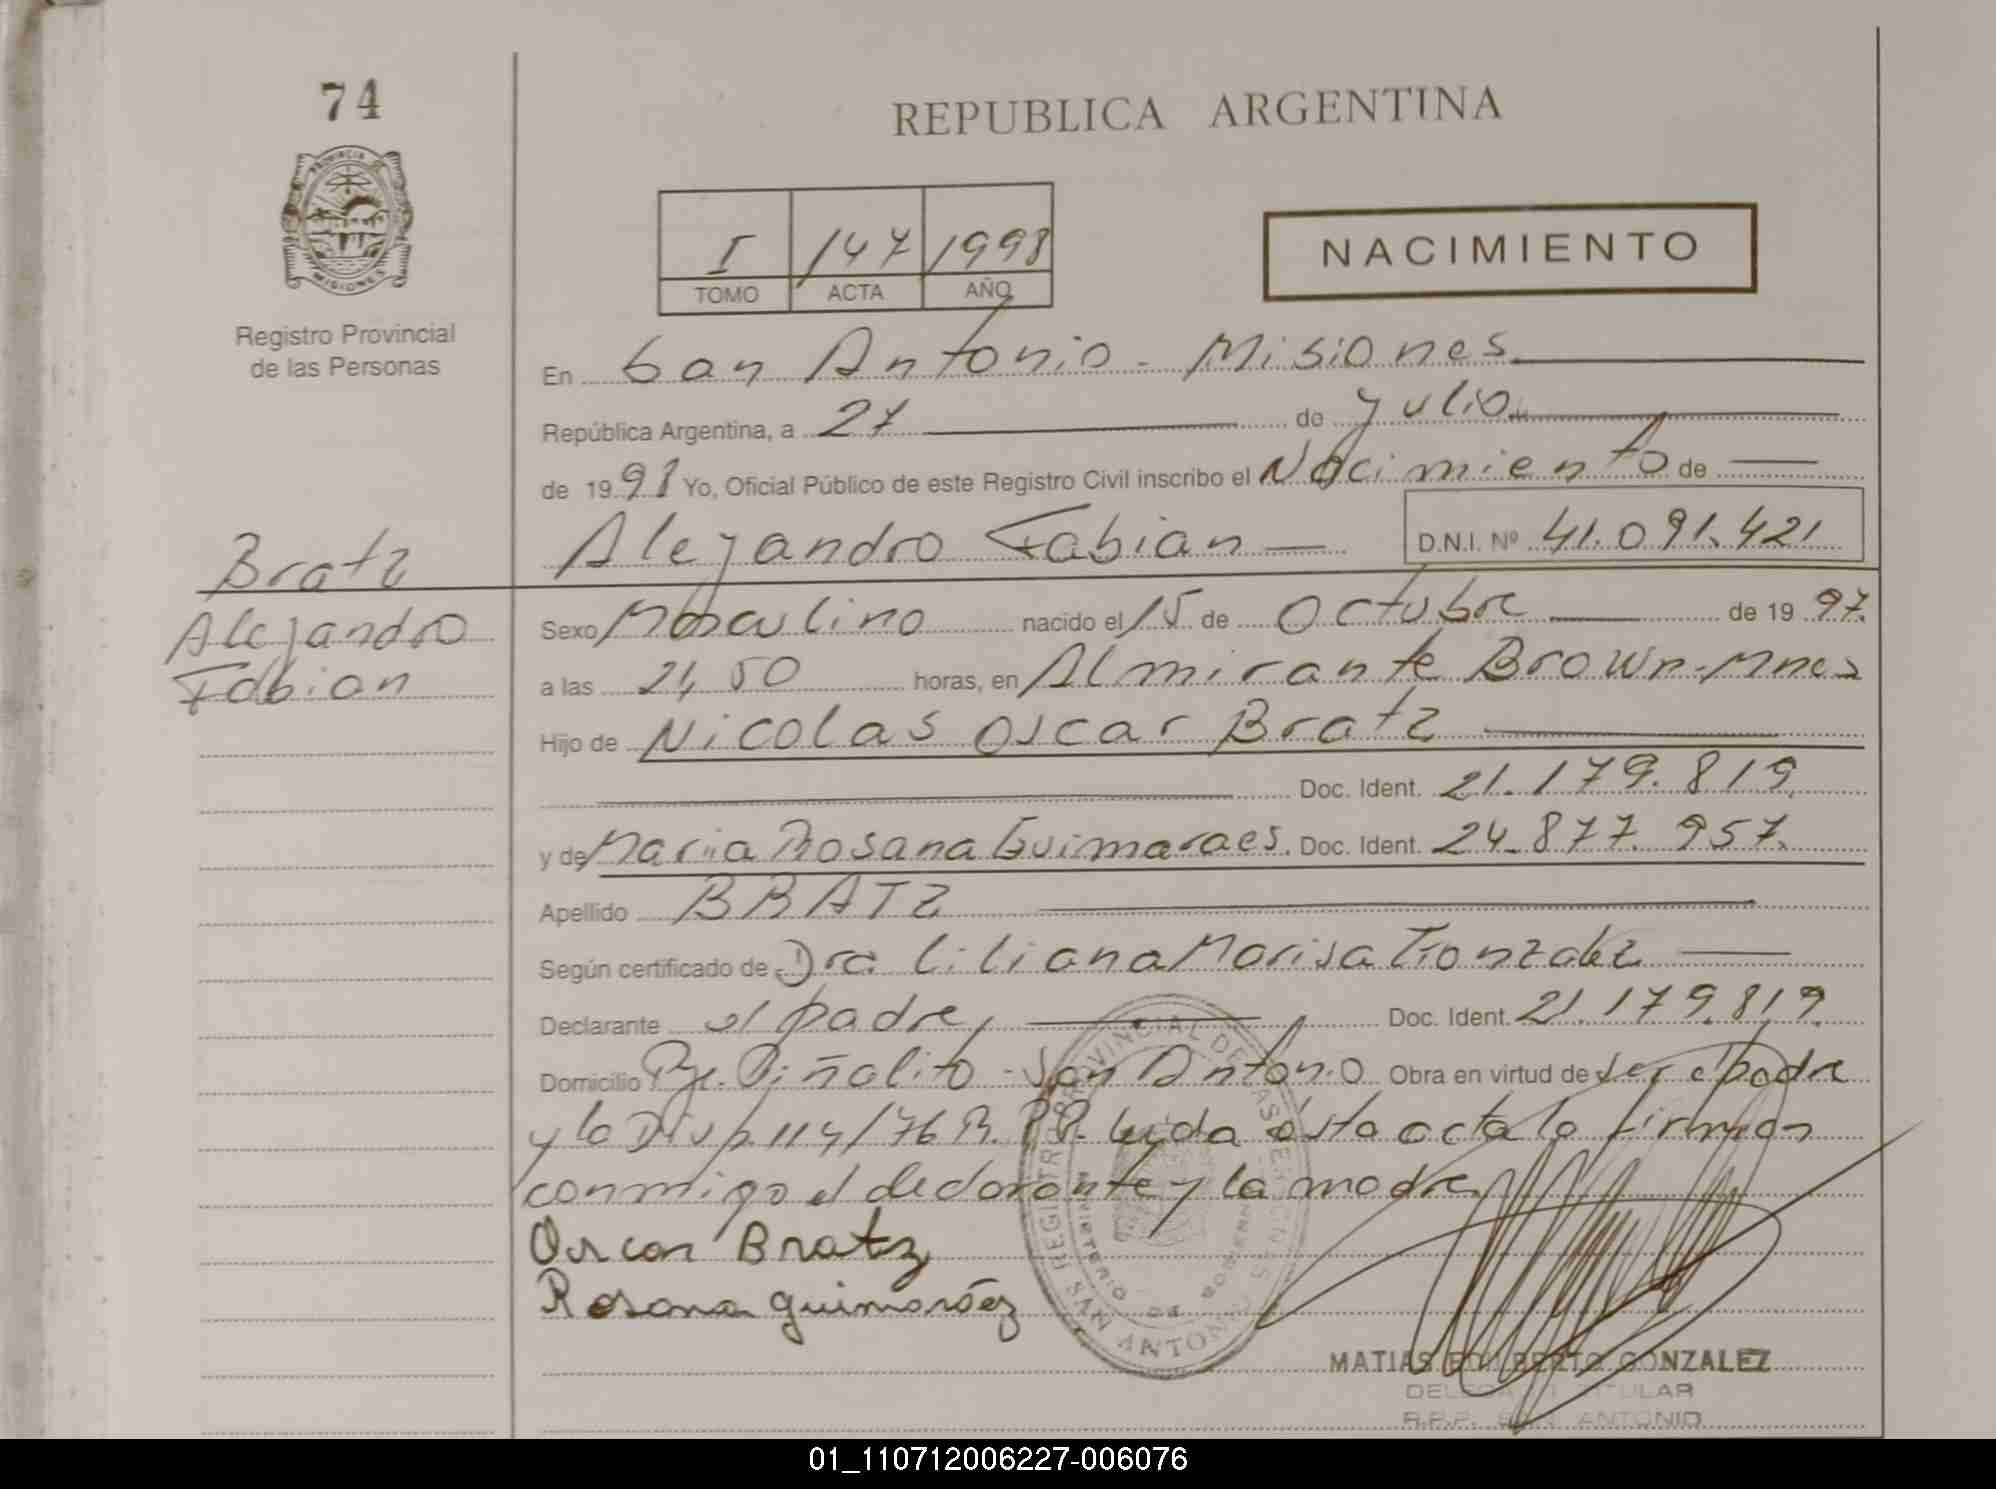 74
REPUBLICA ARGENTINA
PROVINCIA DE
MISIONES
Registro Provincial
de las Personas
I 147 1998
TOMO ACTA AÑO
NACIMIENTO
En San Antonio - Misiones
República Argentina, a 27 de Julio
de 1998 Yo, Oficial Público de este Registro Civil inscribo el Nacimiento de
Alejandro Fabian D.N.I. Nº 41.091.421
Bratz
Alejandro
Fabian
Sexo Masculino nacido el 15 de Octubre de 1997.
a las 21,50 horas, en Almirante Brown-Mnes
Hijo de Nicolas Oscar Bratz
Doc. Ident. 21.179.819.
y de Maria Rosana Guimaraes. Doc. Ident. 24.877.957.
Apellido BRATZ
Según certificado de Dra. Liliana Marisa Gonzalez
Declarante el padre, Doc. Ident. 21.179.819.
Domicilio Pje. Piñalito - San Antonio Obra en virtud de ser el padre
y la Disp. 114/76 R.P.P. Leida ésta acta la firman
conmigo el declarante y la madre.
Oscar Bratz
Rosana guimaráez
REGISTRO PROVINCIAL DE LAS PERSONAS
MINISTERIO DE GOBIERNO
SAN ANTONIO
MATIAS EDILBERTO GONZALEZ
DELEGADO TITULAR
R.P.P. SAN ANTONIO
01_110712006227-006076